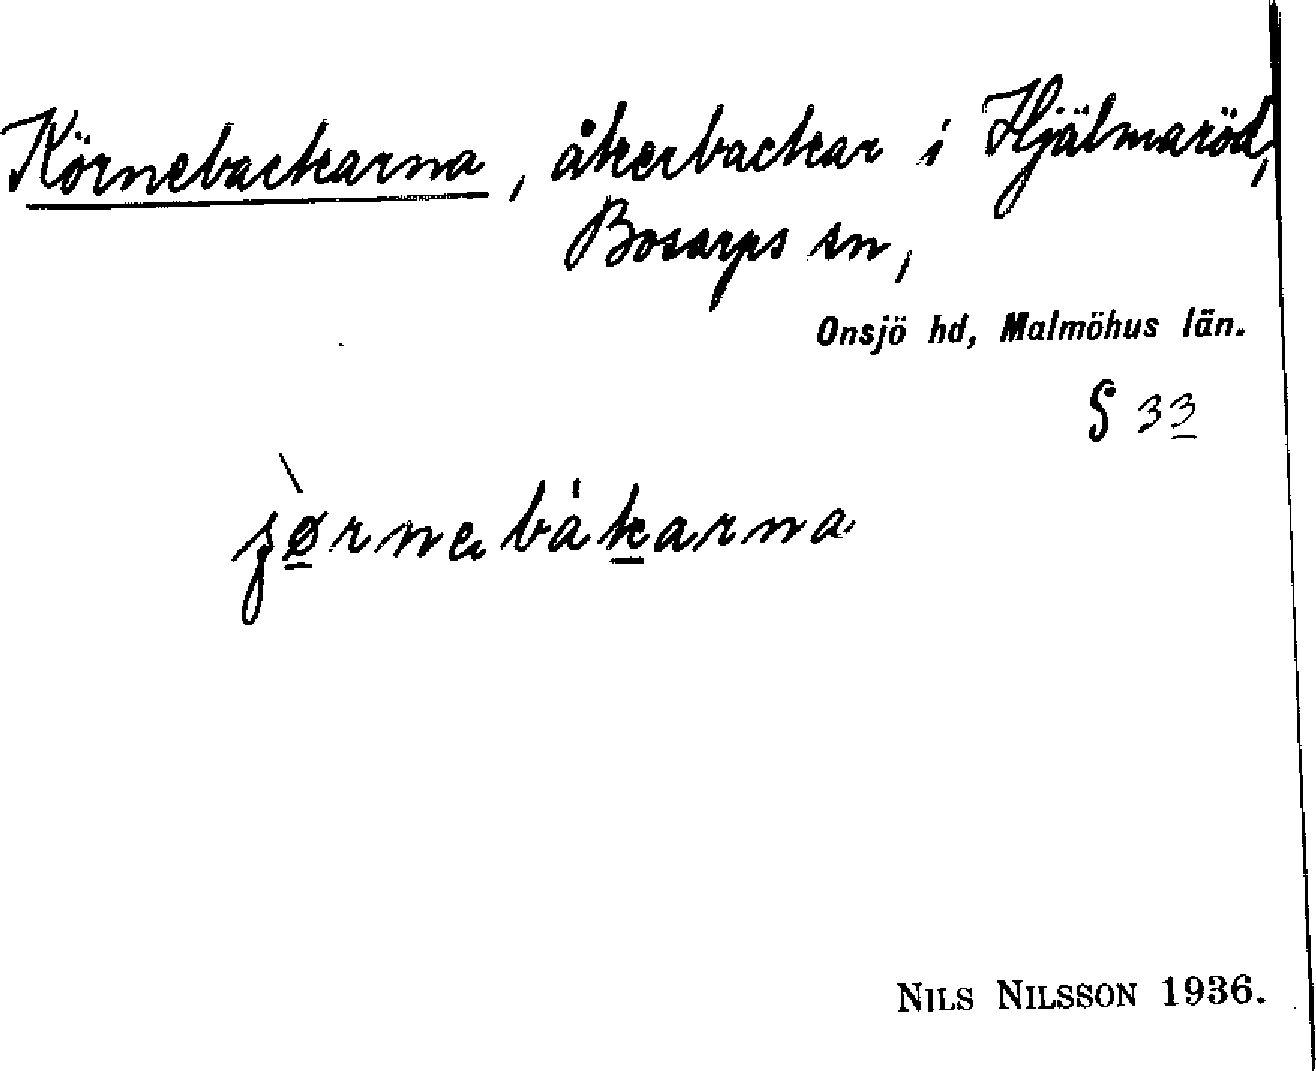 Körnebackarna, åkerbackar i Hjälmaröd,
Bosarps sn,
Onsjö hd, Malmöhus län.
§ 33
NILS NILSSON 1936.